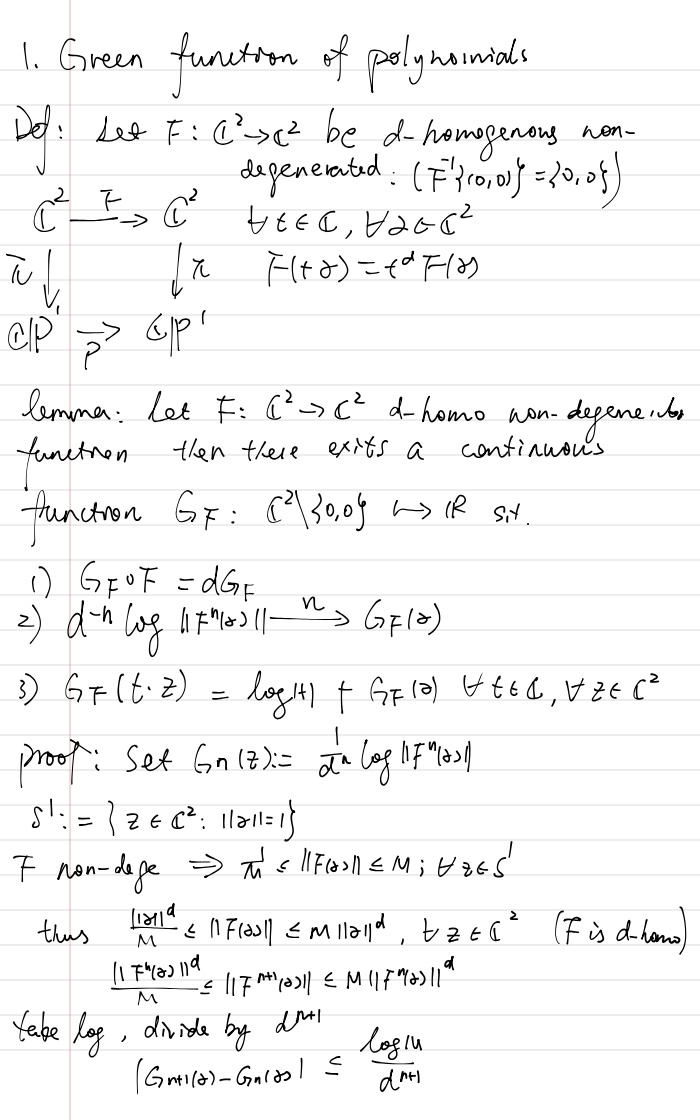 1. Green function of polynoimials
Def: Let F: ℂ²→ℂ² be d-homogenous non-
degenerated: (F⁻¹{(0,0)} = {0,0})
ℂ² —F→ ℂ² ∀t∈ℂ, ∀z∈ℂ²
π↓ ↓π F(tz) = t^d F(z)
ℂ|P¹ —p→ ℂ|P¹
lemma: Let F: ℂ²→ℂ² d-homo non-degenerate
function then there exits a continuous
function G_F: ℂ²\{0,0} ↦ ℝ s.t.
1) G_F∘F = dG_F
2) d^{-n} log ||F^n(z)|| —n→ G_F(z)
3) G_F(t·z) = log|t| + G_F(z) ∀t∈ℂ, ∀z∈ℂ²
proof: Set G_n(z):= 1/d^n log ||F^n(z)||
S¹:= {z∈ℂ²: ||z||=1}
F non-dege ⇒ 1/M ≤ ||F(z)|| ≤ M; ∀z∈S¹
thus ||z||^d/M ≤ ||F(z)|| ≤ M||z||^d, ∀z∈ℂ² (F is d-homo)
||F^n(z)||^d/M ≤ ||F^{n+1}(z)|| ≤ M||F^n(z)||^d
take log, divide by d^{n+1}
|G_{n+1}(z)-G_n(z)| ≤ log M/d^{n+1}